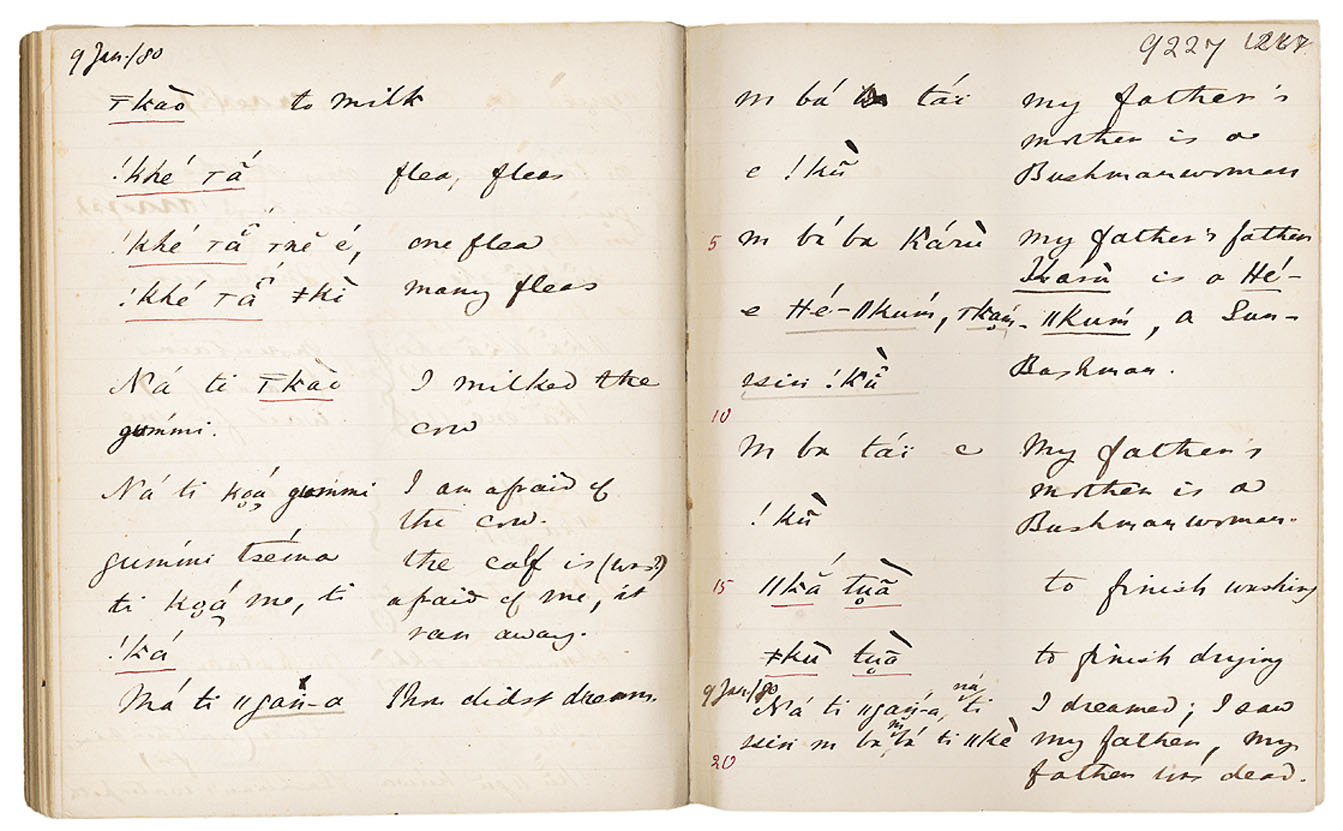 9 Jan./80
ꞱkàǑ to milk
!khé ꞱǍ́ flea, fleas
!khé Ʇä́ Ʇnĕ é, one flea
!khé Ʇä́ ǂkì many fleas
Ná ti Ʇkào I milked the
gúmmi. cow
Ná ti kọá gúmmi I am afraid of
the cow.
gúmmi tséma the calf is (was?)
ti kọá me, ti afraid of me, it
!ká ran away.
Má ti ǁgań-a Thou didst dream.
9227
m bá tái my father's
mother is a
e !kũ̀ Bushmanwoman
5 m bá ba Kárù my father's father
Karù is a Hé-
e Hé-ǁkum´, Ʇkaṃ´- ǁkum´, a Sun-
ssin !kũ̀ Bushman.
10
m ba tái e My father's
mother is a
!kũ̀ Bushmanwoman.
15 ǁkắ tụà̃ to finish washing
ǂkù tụà̃ to finish drying
9 Jan./80
Ná ti ǁgań-a, ná ti I dreamed; I saw
ssin m ba, m bá ti ǁkè my father, my
20 father was dead.